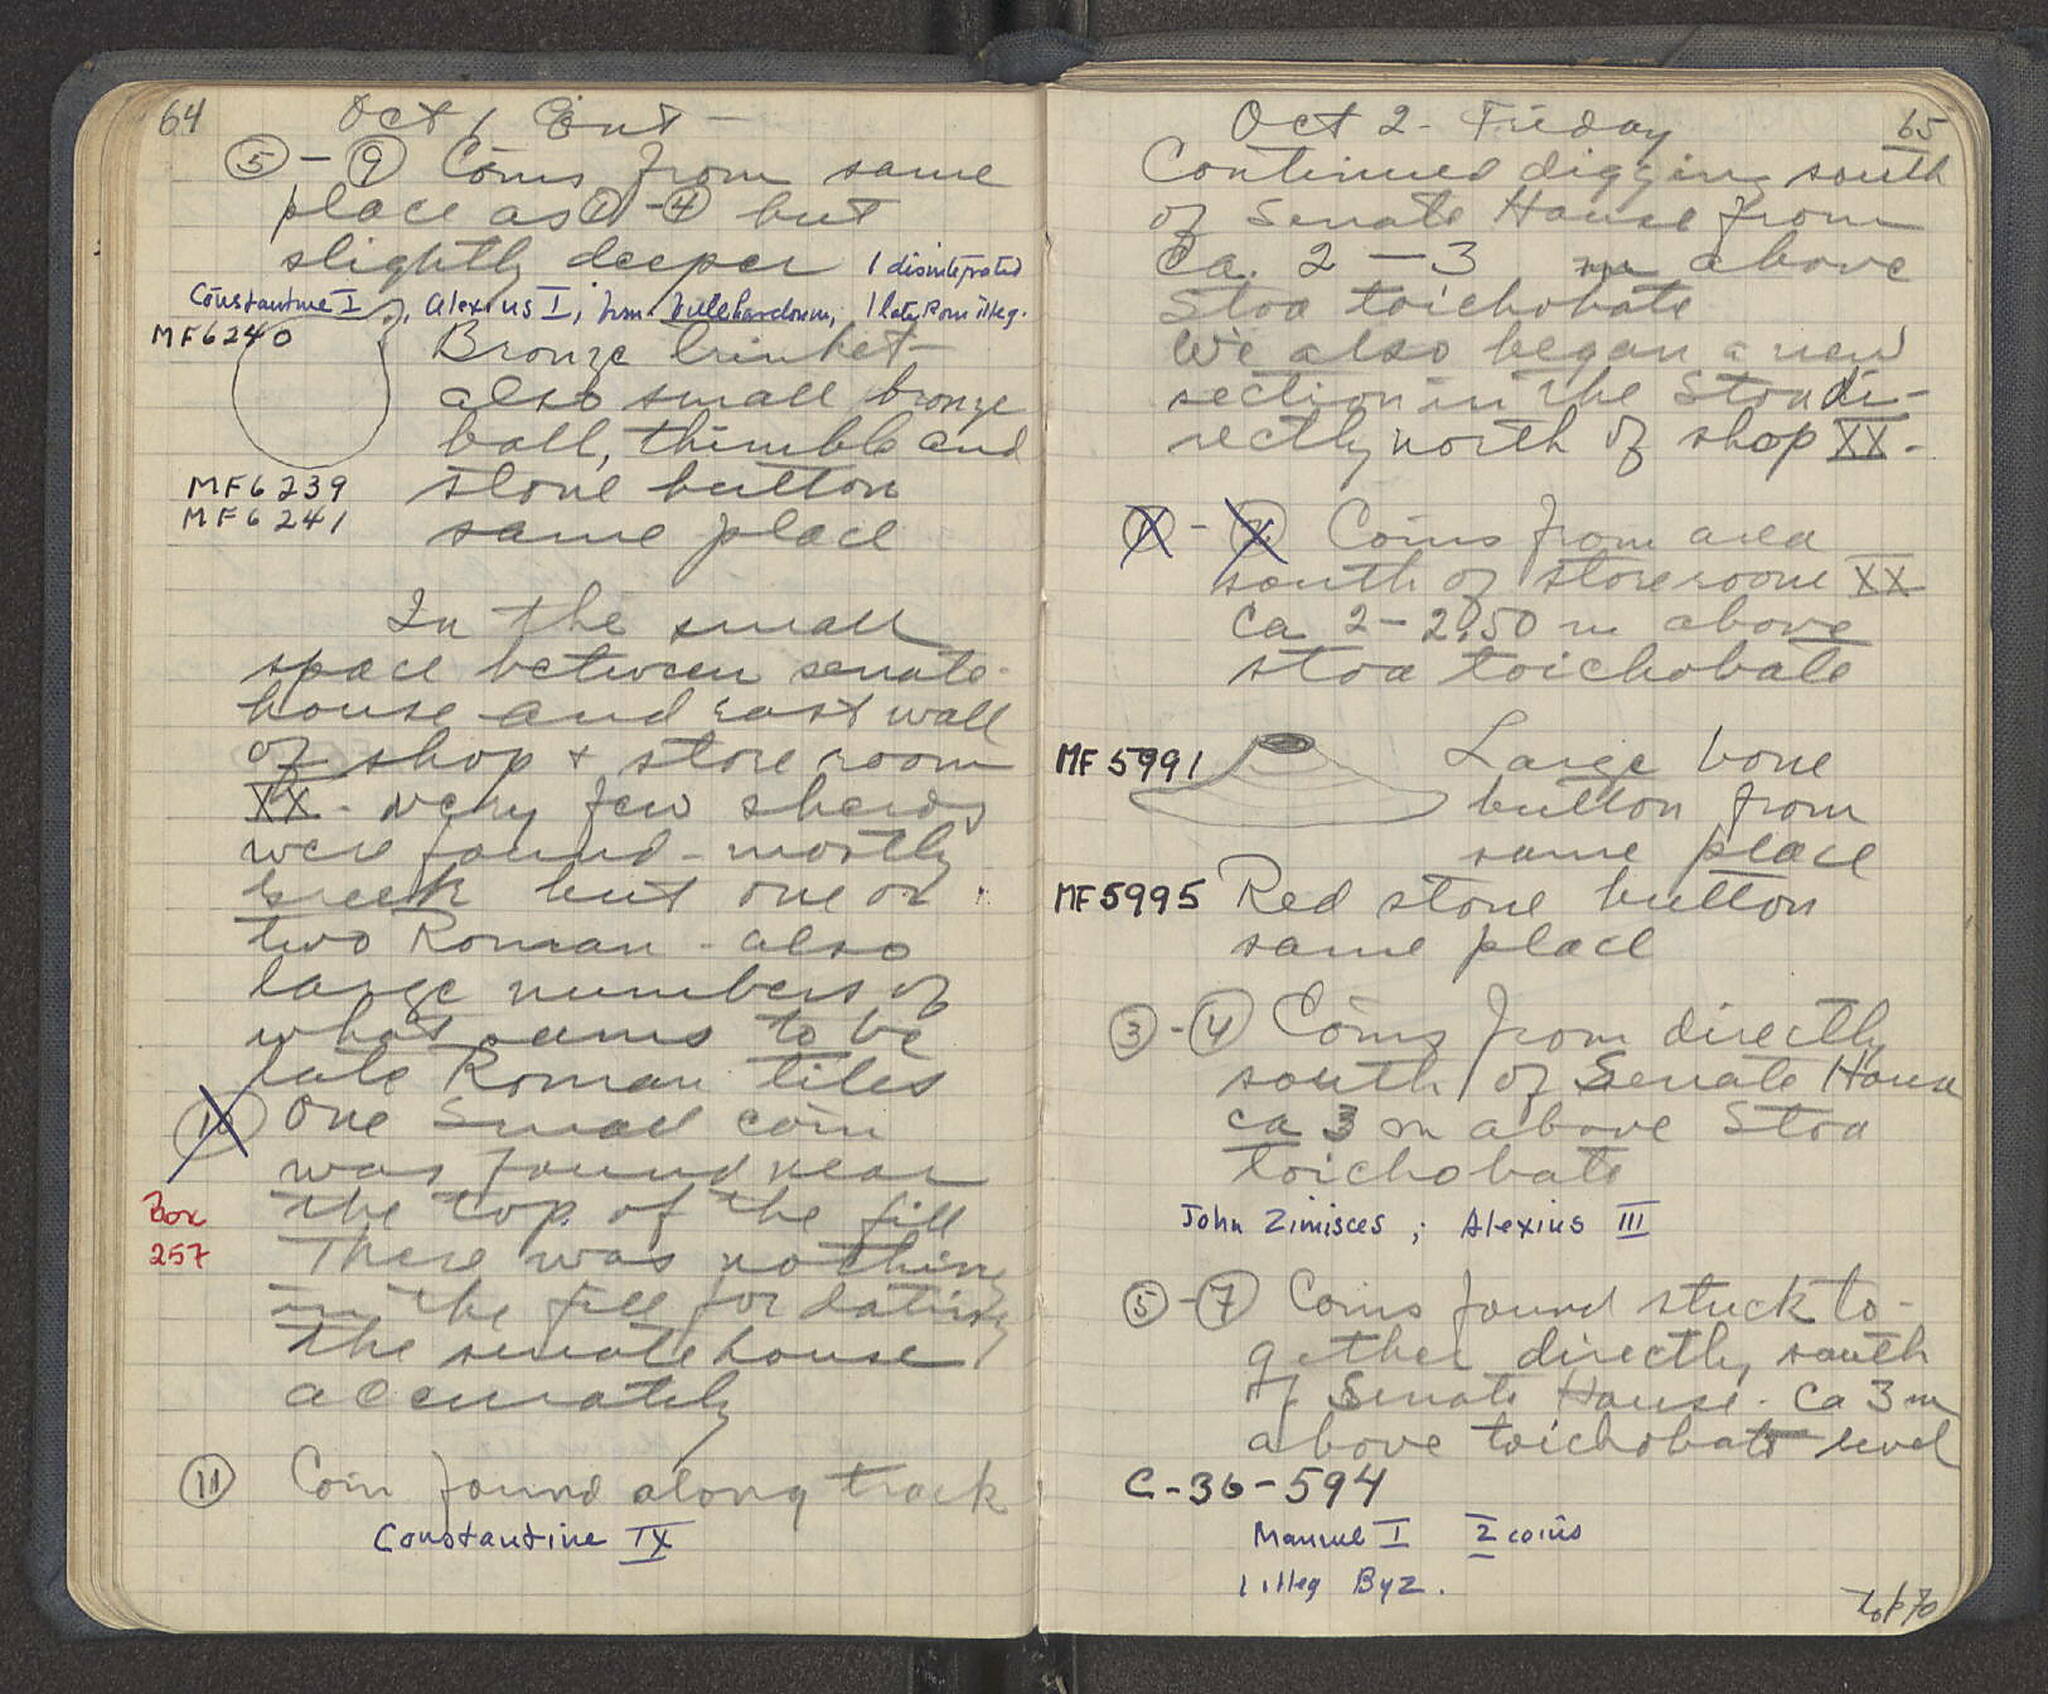 64
Oct 1 Cont -
⑤ - ⑨ Coins from same
place as ① - ④ but
slightly deeper 1 disintegrated
Constantine I, Alexius I, Villehardouin, 1 late Rom illeg.
MF6240 Bronze trinket -
also small bronze
ball, thimble and
MF6239 stone button
MF6241 same place
In the small
space between senate-
house and east wall
of shop + store room
XX - very few sherds
were found - mostly
Greek but one or
two Roman - also
large numbers of
what seems to be
late Roman tiles
⑩ One small coin
was found near
Box the top of the fill
257 There was nothing
in the fill for dating
the senate house
accurately
⑪ Coin found along track
Constantine IX
Oct 2 - Friday 65
Continued digging south
of Senate House from
Ca. 2 - 3 m above
Stoa toichobate
We also began a new
section in the Stoa di-
rectly north of shop XX -
① - ② Coins from area
south of storeroom XX
Ca 2 - 2.50 m above
stoa toichobate
MF 5991 Large bone
button from
same place
MF5995 Red stone button
same place
③ - ④ Coins from directly
south of Senate House
ca 3 m above Stoa
toichobate
John Zimisces ; Alexius III
⑤ - ⑦ Coins found stuck to-
gether directly south
of Senate House - Ca 3 m
above toichobate level
C-36-594
Manuel I 2 coins
1 illeg Byz.
to p 70